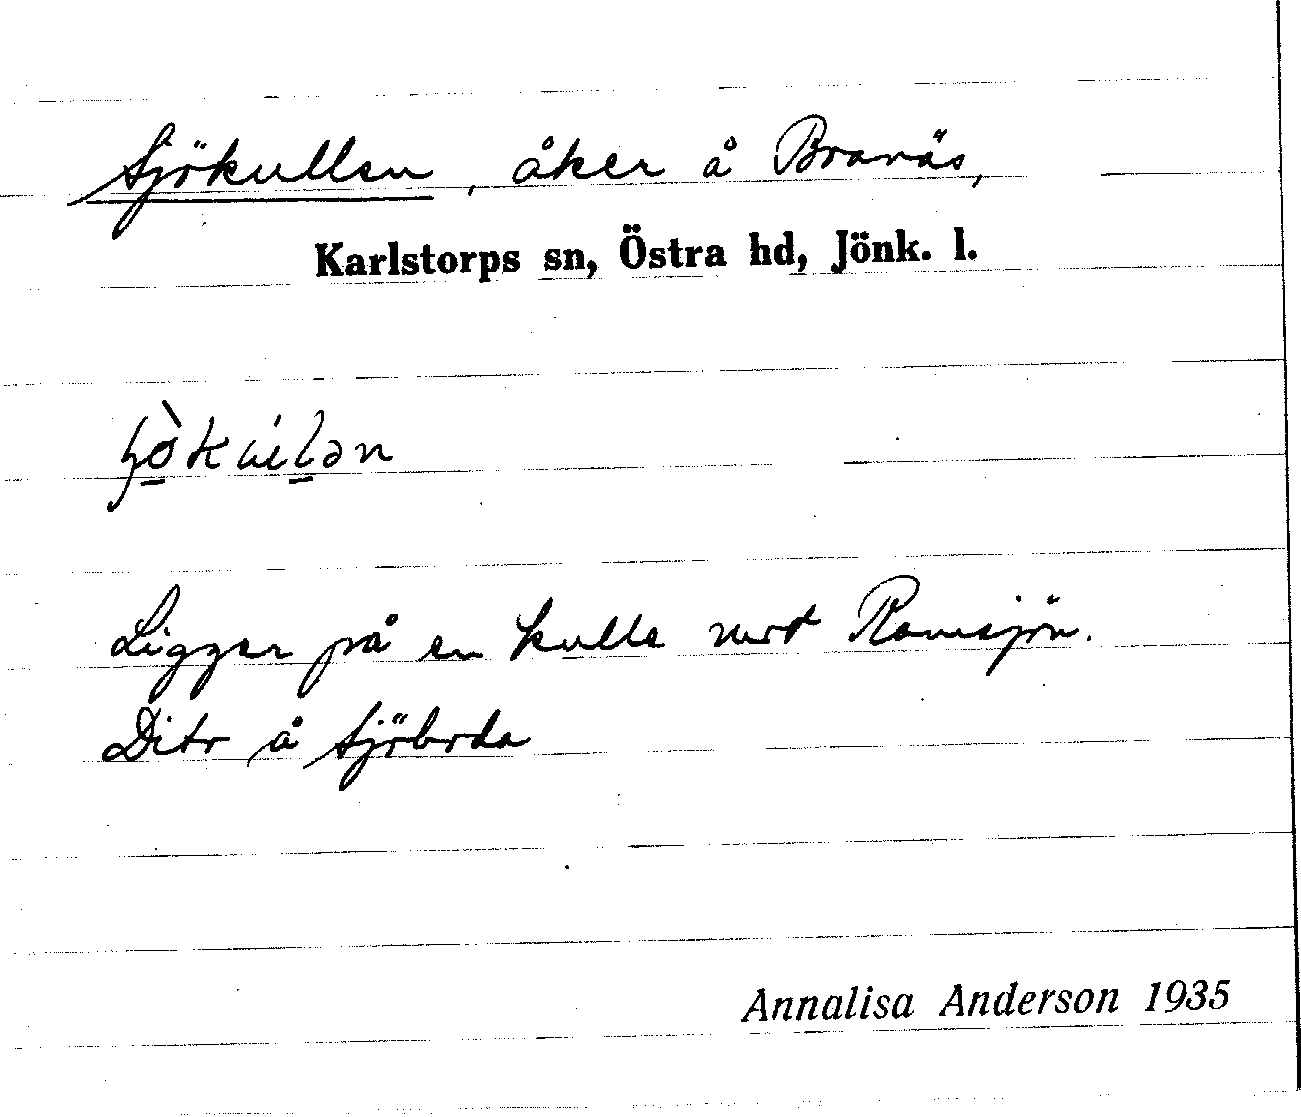 Sjökullen, åker å Branäs,
Karlstorps sn, Östra hd, Jönk. l.
Ligger på en kulle mot Ramsjön.
Dito å Sjöbrda
Annalisa Anderson 1935